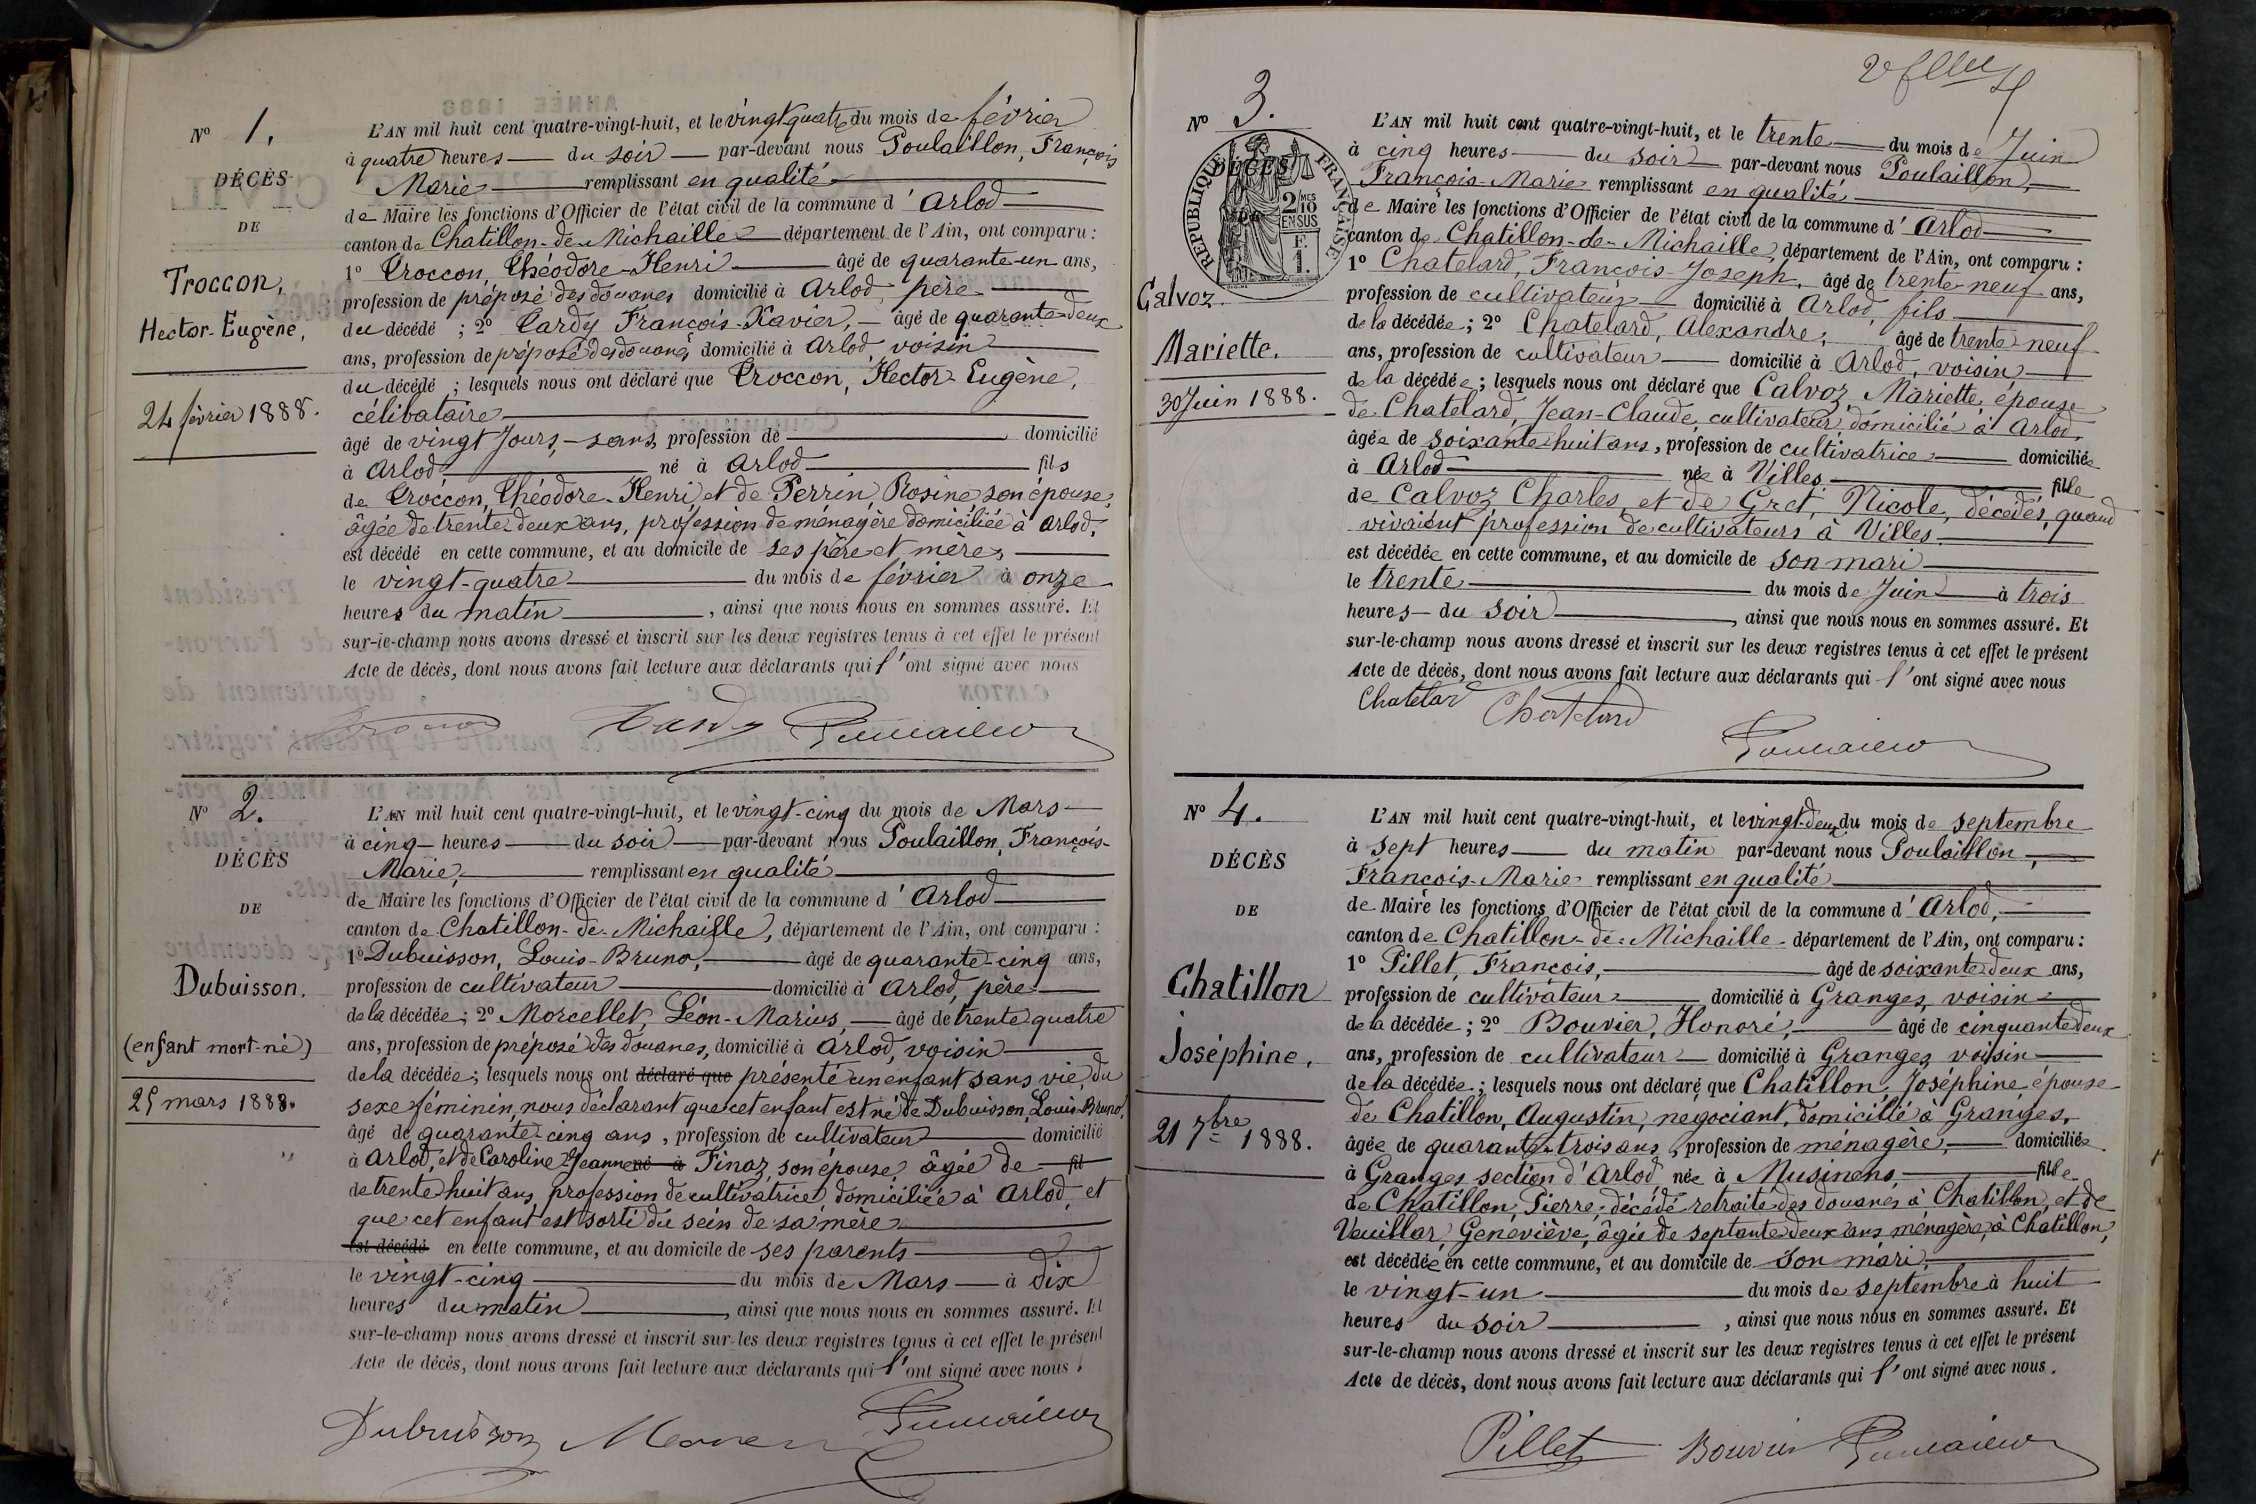 N° 1.
DÉCÈS
DE
Troccon,
Hector-Eugène,
24 février 1888.
L'AN mil huit cent quatre-vingt-huit, et le vingt-quatre du mois de février
à quatre heures du soir par-devant nous Poulaillon, François
Marie remplissant en qualité
de Maire les fonctions d'Officier de l'état civil de la commune d'Arlod
canton de Chatillon-de-Michaille département de l'Ain, ont comparu :
1° Troccon, Théodore-Henri âgé de quarante-un ans,
profession de préposé des douanes domicilié à Arlod, père
du décédé ; 2° Tardy François-Xavier, âgé de quarante-deux
ans, profession de préposé des douanes domicilié à Arlod, voisin
du décédé ; lesquels nous ont déclaré que Troccon, Hector-Eugène,
célibataire
âgé de vingt jours, sans profession de domicilié
à Arlod né à Arlod fils
de Troccon, Théodore-Henri et de Perrin Rosine son épouse,
âgée de trente-deux ans, profession de ménagère domiciliée à Arlod,
est décédé en cette commune, et au domicile de ses père et mère,
le vingt-quatre du mois de février à onze
heures du matin , ainsi que nous nous en sommes assuré. Et
sur-le-champ nous avons dressé et inscrit sur les deux registres tenus à cet effet le présent
Acte de décès, dont nous avons fait lecture aux déclarants qui l'ont signé avec nous
Tardy Poulaillon
N° 2.
DÉCÈS
DE
Dubuisson.
(enfant mort-né)
25 mars 1888.
L'AN mil huit cent quatre-vingt-huit, et le vingt-cinq du mois de Mars
à cinq heures du soir par-devant nous Poulaillon, François-
Marie, remplissant en qualité
de Maire les fonctions d'Officier de l'état civil de la commune d'Arlod
canton de Chatillon-de-Michaille, département de l'Ain, ont comparu :
1° Dubuisson, Louis-Bruno, âgé de quarante-cinq ans,
profession de cultivateur domicilié à Arlod, père
de la décédée ; 2° Morcellet, Léon-Marius, âgé de trente-quatre
ans, profession de préposé des douanes, domicilié à Arlod, voisin
de la décédée ; lesquels nous ont déclaré que présenté un enfant sans vie, du
sexe féminin, nous déclarant que cet enfant est né de Dubuisson, Louis-Bruno,
âgé de quarante-cinq ans, profession de cultivateur domicilié
à Arlod, et de Caroline Jeanne né à Finaz, son épouse, âgée de fil
de trente-huit ans, profession de cultivatrice, domiciliée à Arlod, et
que cet enfant est sorti du sein de sa mère
est décédé en cette commune, et au domicile de ses parents
le vingt-cinq du mois de Mars à dix
heures du matin , ainsi que nous nous en sommes assuré. Et
sur-le-champ nous avons dressé et inscrit sur les deux registres tenus à cet effet le présent
Acte de décès, dont nous avons fait lecture aux déclarants qui l'ont signé avec nous.
Dubuisson Poulaillon
N° 3.
DÉCÈS
RÉPUBLIQUE FRANÇAISE
2/MES 10 EN SUS
F. 1.
Calvoz
Mariette.
30 Juin 1888.
L'AN mil huit cent quatre-vingt-huit, et le trente du mois de Juin
à cinq heures du soir par-devant nous Poulaillon,
François-Marie remplissant en qualité
de Maire les fonctions d'Officier de l'état civil de la commune d'Arlod
canton de Chatillon-de-Michaille, département de l'Ain, ont comparu :
1° Chatelard, François-Joseph, âgé de trente-neuf ans,
profession de cultivateur domicilié à Arlod, fils
de la décédée ; 2° Chatelard, Alexandre, âgé de trente-neuf
ans, profession de cultivateur domicilié à Arlod, voisin
de la décédée ; lesquels nous ont déclaré que Calvoz, Mariette, épouse
de Chatelard, Jean-Claude, cultivateur, domicilié à Arlod,
âgée de soixante-huit ans, profession de cultivatrice domiciliée
à Arlod née à Villes fille
de Calvoz Charles, et de Gret, Nicole, décédés, quand
vivaient profession de cultivateurs à Villes.
est décédée en cette commune, et au domicile de son mari
le trente du mois de Juin à trois
heures du soir , ainsi que nous nous en sommes assuré. Et
sur-le-champ nous avons dressé et inscrit sur les deux registres tenus à cet effet le présent
Acte de décès, dont nous avons fait lecture aux déclarants qui l'ont signé avec nous
Chatelard Chatelard
Poulaillon
N° 4.
DÉCÈS
DE
Chatillon
Joséphine.
21 7bre 1888.
L'AN mil huit cent quatre-vingt-huit, et le vingt-deux du mois de septembre
à sept heures du matin par-devant nous Poulaillon,
François-Marie remplissant en qualité
de Maire les fonctions d'Officier de l'état civil de la commune d'Arlod,
canton de Chatillon-de-Michaille département de l'Ain, ont comparu :
1° Pillet, François, âgé de soixante-deux ans,
profession de cultivateur domicilié à Granges, voisin
de la décédée ; 2° Bouvier, Honoré, âgé de cinquante-deux
ans, profession de cultivateur domicilié à Granges, voisin
de la décédée ; lesquels nous ont déclaré que Chatillon, Joséphine, épouse
de Chatillon, Augustin, négociant, domicilié à Granges,
âgée de quarante-trois ans, profession de ménagère, domiciliée
à Granges section d'Arlod née à Musinens, fille
de Chatillon, Pierre, décédé retraité des douanes à Chatillon, et de
Vuillar, Geneviève, âgée de septante-deux ans, ménagère, à Chatillon,
est décédée en cette commune, et au domicile de son mari,
le vingt-un du mois de septembre à huit
heures du soir , ainsi que nous nous en sommes assuré. Et
sur-le-champ nous avons dressé et inscrit sur les deux registres tenus à cet effet le présent
Acte de décès, dont nous avons fait lecture aux déclarants qui l'ont signé avec nous.
Pillet Bouvier Poulaillon